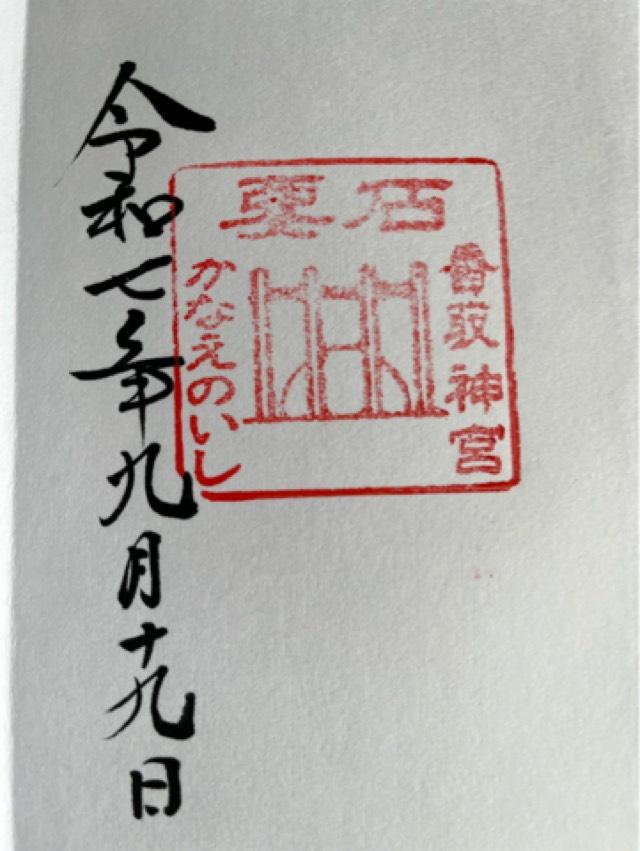 要石
香取神宮
かなえのいし
令和七年九月十九日